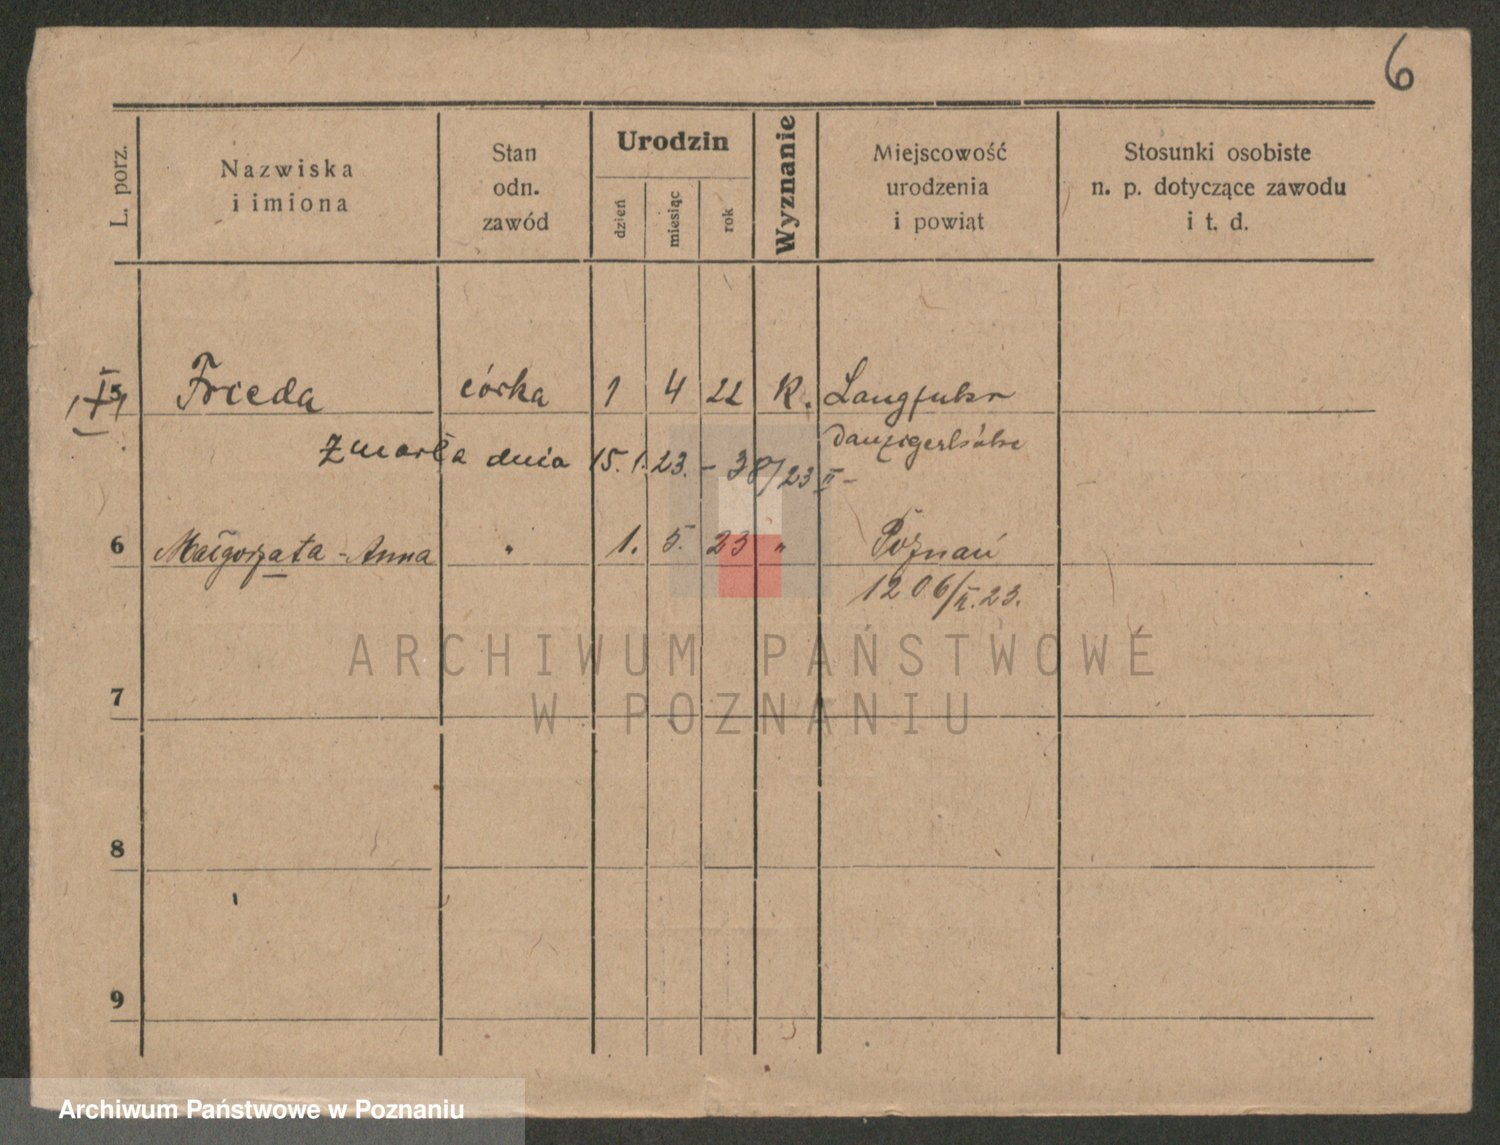 6
L. porz.
Nazwiska
i imiona
Stan
odn.
zawód
Urodzin
dzień
miesiąc
rok
Wyznanie
Miejscowość
urodzenia
i powiąt
Stosunki osobiste
n. p. dotyczące zawodu
i t. d.
5 Frieda córka 1 4 22 K. Langfuhr
Zmarła dnia 15.1.23. - 38/23 II -
6 Małgorzata - Anna " 1. 5. 23 " Poznań
1206/II.23.
7
8
9
ARCHIWUM PAŃSTWOWE
W POZNANIU
Archiwum Państwowe w Poznaniu